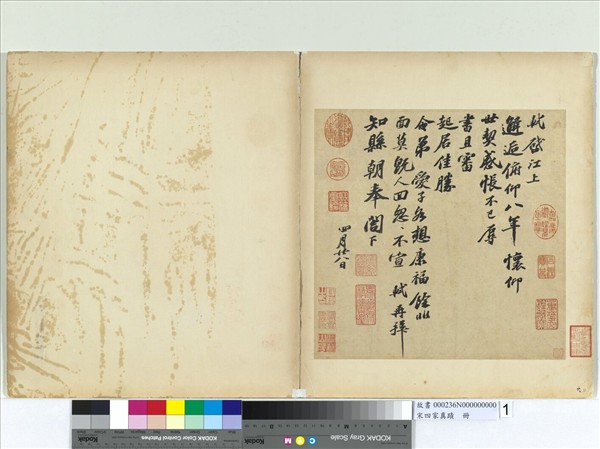 軾啟江上
邂逅俯仰八年懷仰
世契感悵不已辱
書且審
起居佳勝
令弟愛子各想康福餘非
面莫既人回怱怱不宣 軾再拜
知縣朝奉閣下
四月廿八日
KODAK Color Control Patches
Kodak
KODAK Gray Scale
C Y M
Kodak
故書 000236N000000000
宋四家真蹟 冊
1